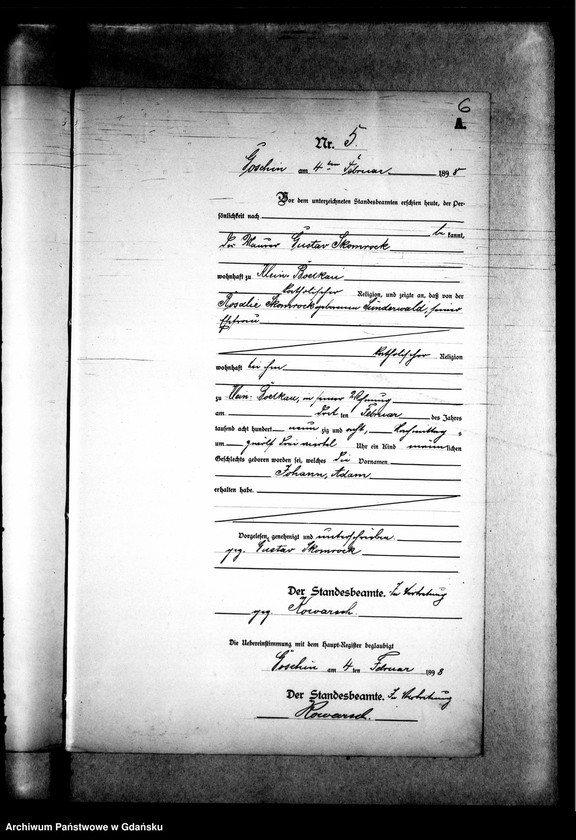 6
A.
Nr. 5
Goschin am 4ten Februar 1898
Vor dem unterzeichneten Standesbeamten erschien heute, der Per-
sönlichkeit nach
be kannt,
der Maurer Gustav Skomrock
wohnhaft zu Klein-Boelkau
katholischer Religion, und zeigte an, daß von der
Rosalie Skomrock geborenen Sünderwald, seiner
Ehefrau
katholischer Religion
wohnhaft bei ihm
zu Klein-Boelkau, in seiner Wohnung
am ten Februar des Jahres
tausend acht hundert neun zig und acht, Nachmittag s
um zwölf drei viertel Uhr ein Kind männ lichen
Geschlechts geboren worden sei, welches die Vornamen
Johann, Adam
erhalten habe.
Vorgelesen, genehmigt und unterschrieben
gez. Gustav Skomrock
Der Standesbeamte. In Vertretung
gez. Kowarsch.
Die Uebereinstimmung mit dem Haupt-Register beglaubigt
Goschin am 4 ten Februar 1898
Der Standesbeamte. In Vertretung
Kowarsch.
Archiwum Państwowe w Gdańsku